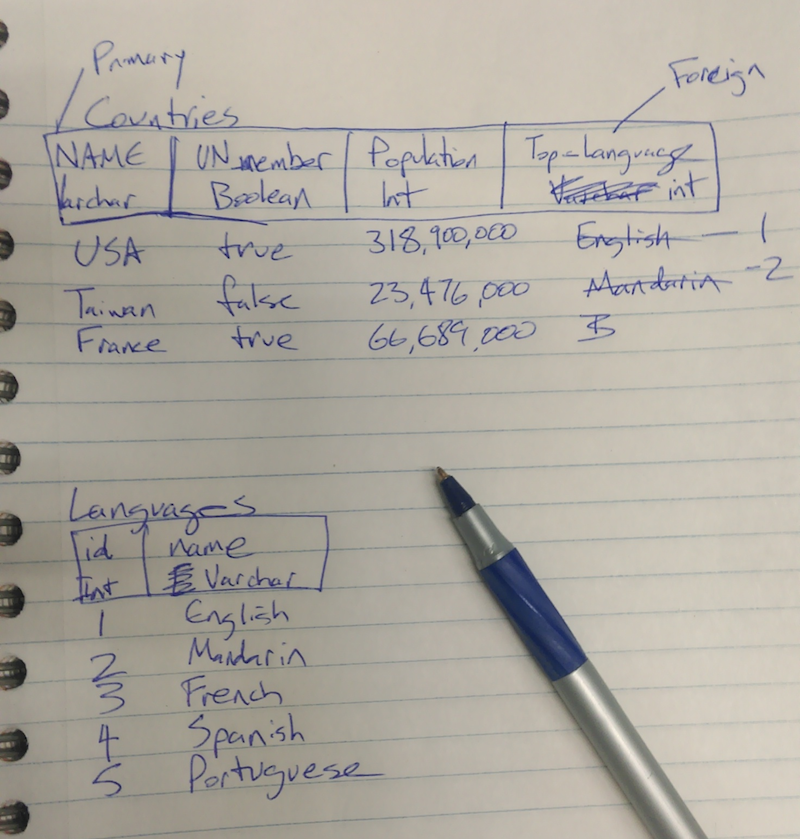 Primary
Foreign
Countries
NAME UN_member Population Top-Language
Varchar Boolean Int Varchar int
USA true 318,900,000 English — 1
Taiwan false 23,476,000 Mandarin - 2
France true 66,689,000 3
Languages
id name
Int Varchar
1 English
2 Mandarin
3 French
4 Spanish
5 Portuguese